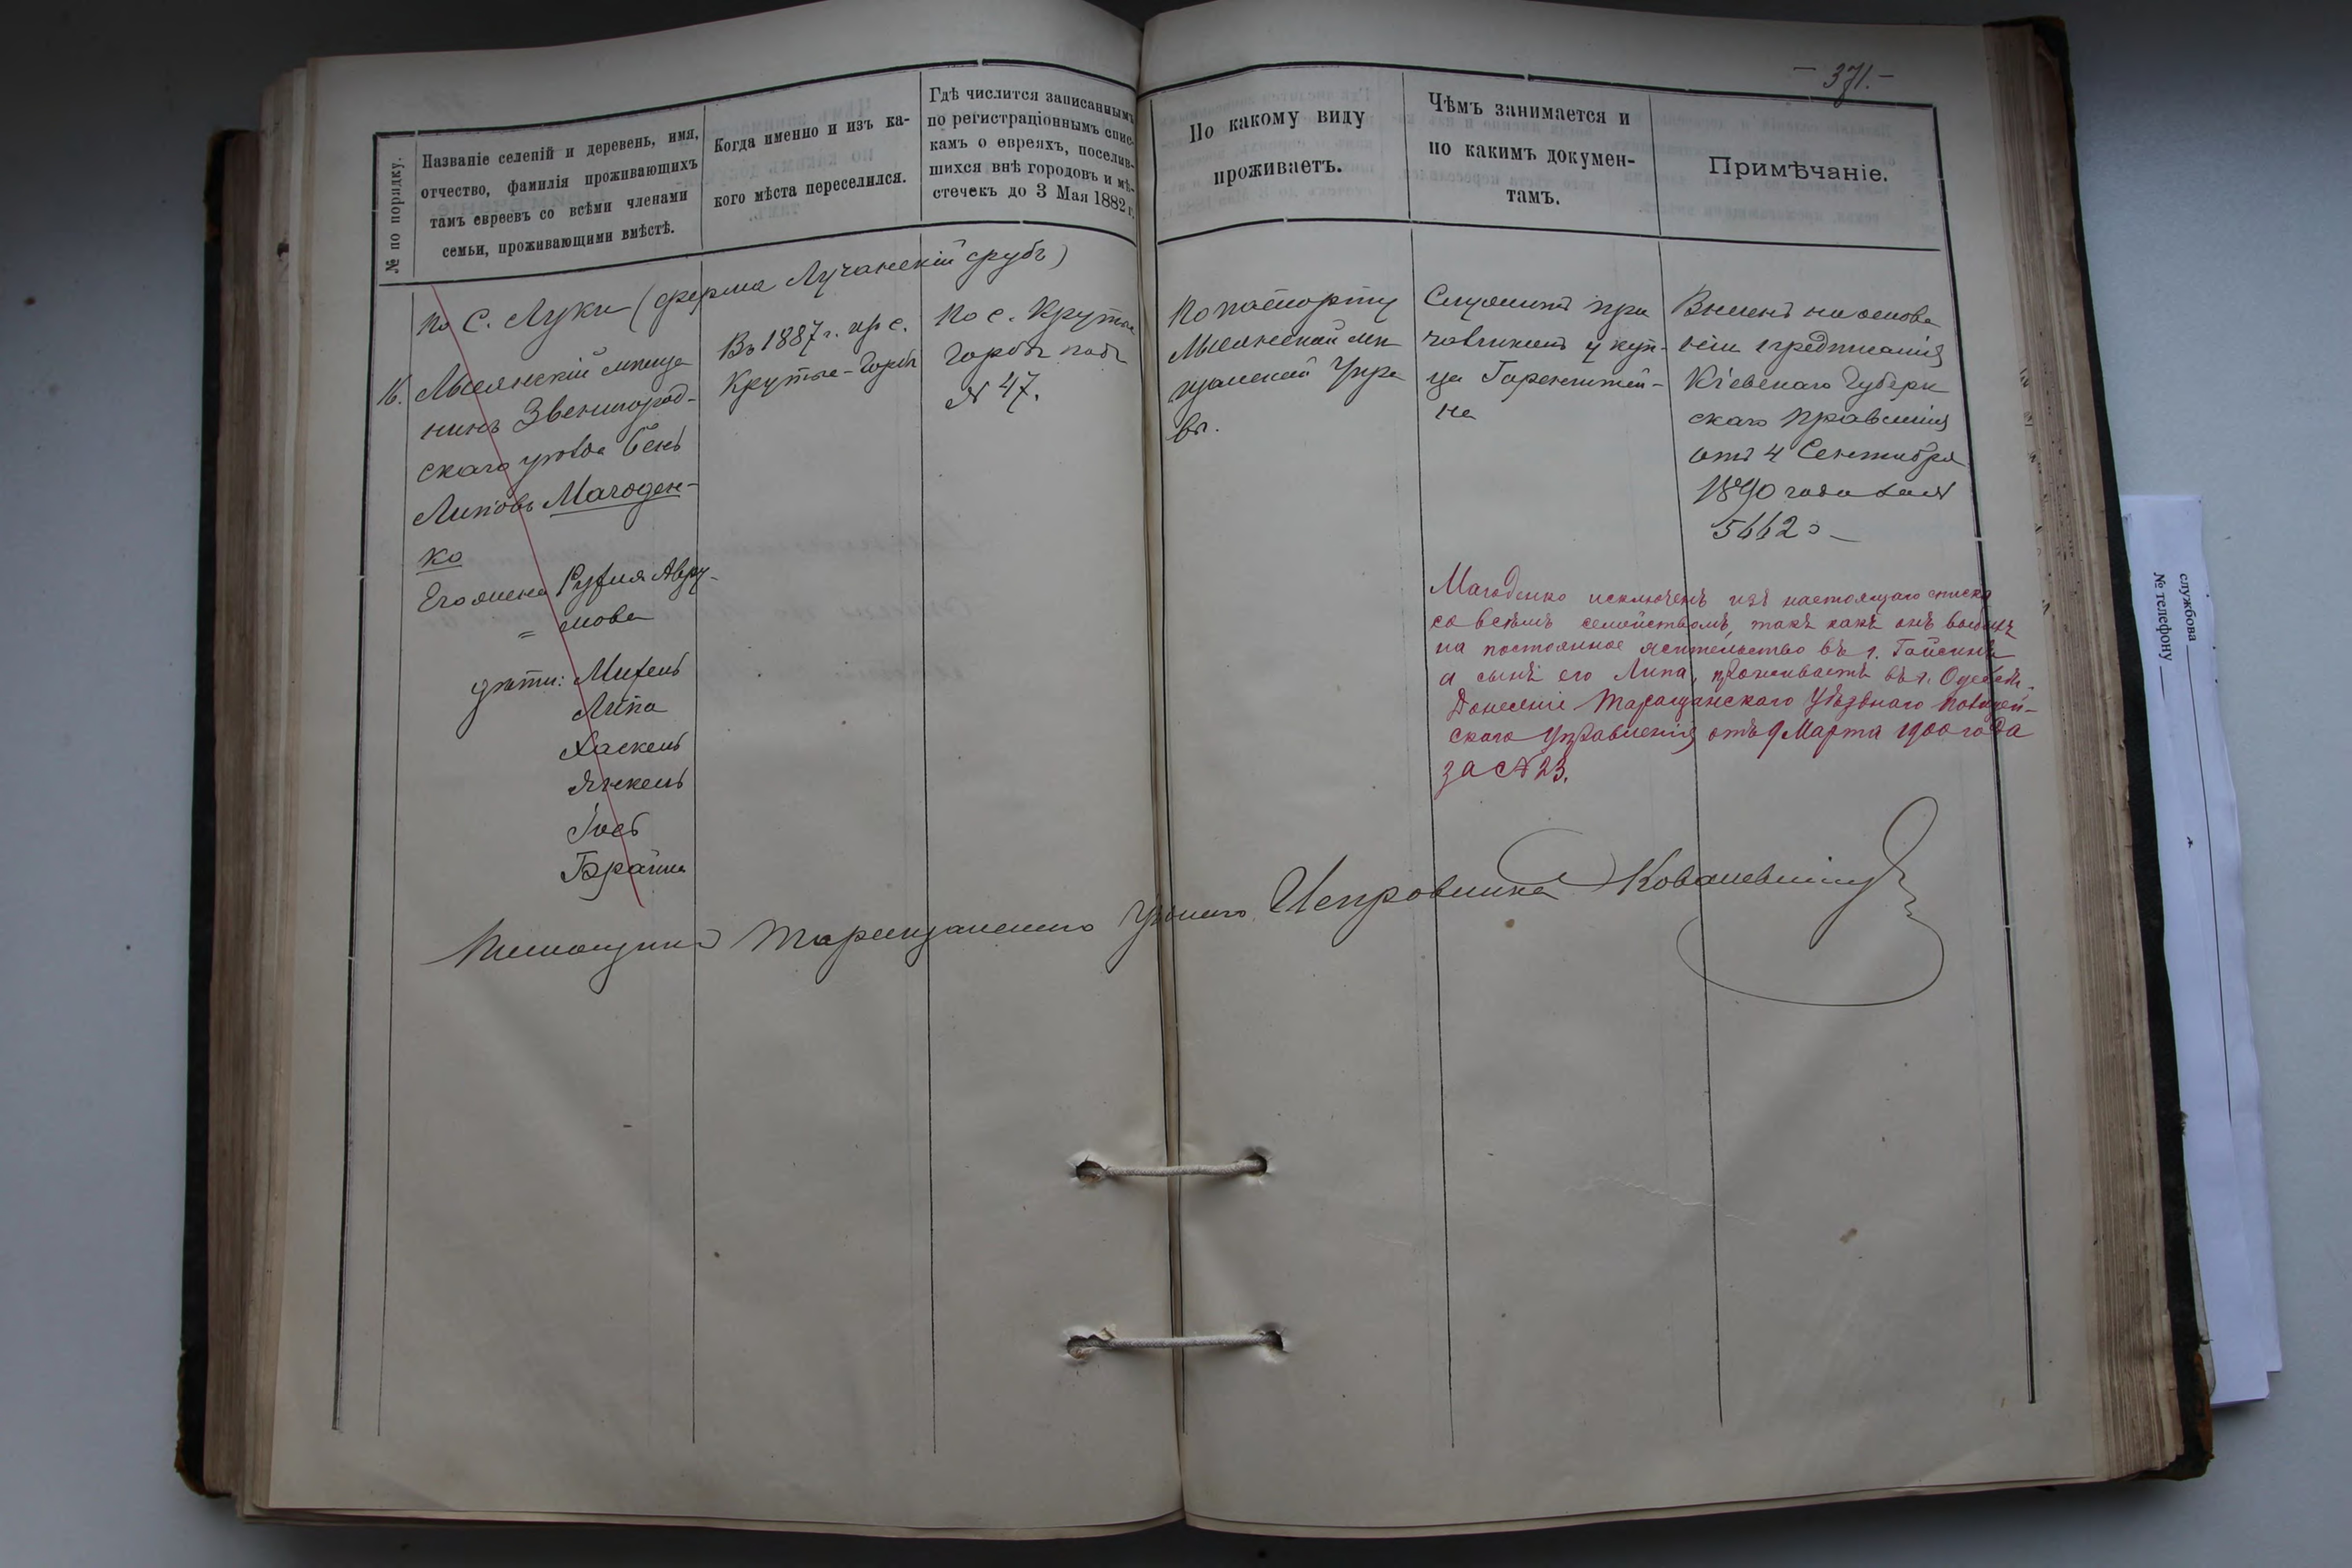 - 371. -
№ по порядку.
Названіе селеній и деревень, имя,
отчество, фамилія проживающихъ
тамъ евреевъ со всѣми членами
семьи, проживающими вмѣстѣ.
Когда именно и изъ ка-
кого мѣста переселился.
Гдѣ числится записаннымъ
по регистраціоннымъ спис-
камъ о евреяхъ, поселив-
шихся внѣ городовъ и мѣ-
стечекъ до 3 Мая 1882 г.
По какому виду
проживаетъ.
Чѣмъ занимается и
по какимъ докумен-
тамъ.
Примѣчаніе.
По с. Луки (ферма Лучанскій срубъ)
16.
Лысянскій мѣща
нинъ Звенигород-
скаго уѣзда Бень
Липовъ Магоден-
ко
Его жена Рухля Авру-
= мова
дѣти: Михель
Липа
Хаскель
Янкель
Іось
Брайна
Въ 1887 г. изъ с.
Крутые-Горбы
По с. Крутые
Горбы подъ
№ 47.
По паспорту
Лысянской мѣ
щанской Упра
вы.
Служитъ при
кащикомъ у куп-
ца Горенштей-
на
Внесенъ на основа
ніи предписанія
Кіевскаго Губерн
скаго Правленія
отъ 4 Сентября
1890 года за №
5662
Магоденко исключенъ изъ настоящаго списка
со всѣмъ семействомъ, такъ какъ онъ выбылъ
на постоянное жительство въ г. Гайсинъ
а сынъ его Липа, проживаетъ въ г. Одессѣ.
Донесеніе Таращанскаго Уѣзднаго Полицей-
скаго Управленія отъ 9 Марта 1900 года
за № 23.
Помощникъ Таращанскаго Уѣзднаго Исправника Ковалевскій
службова
№ телефону